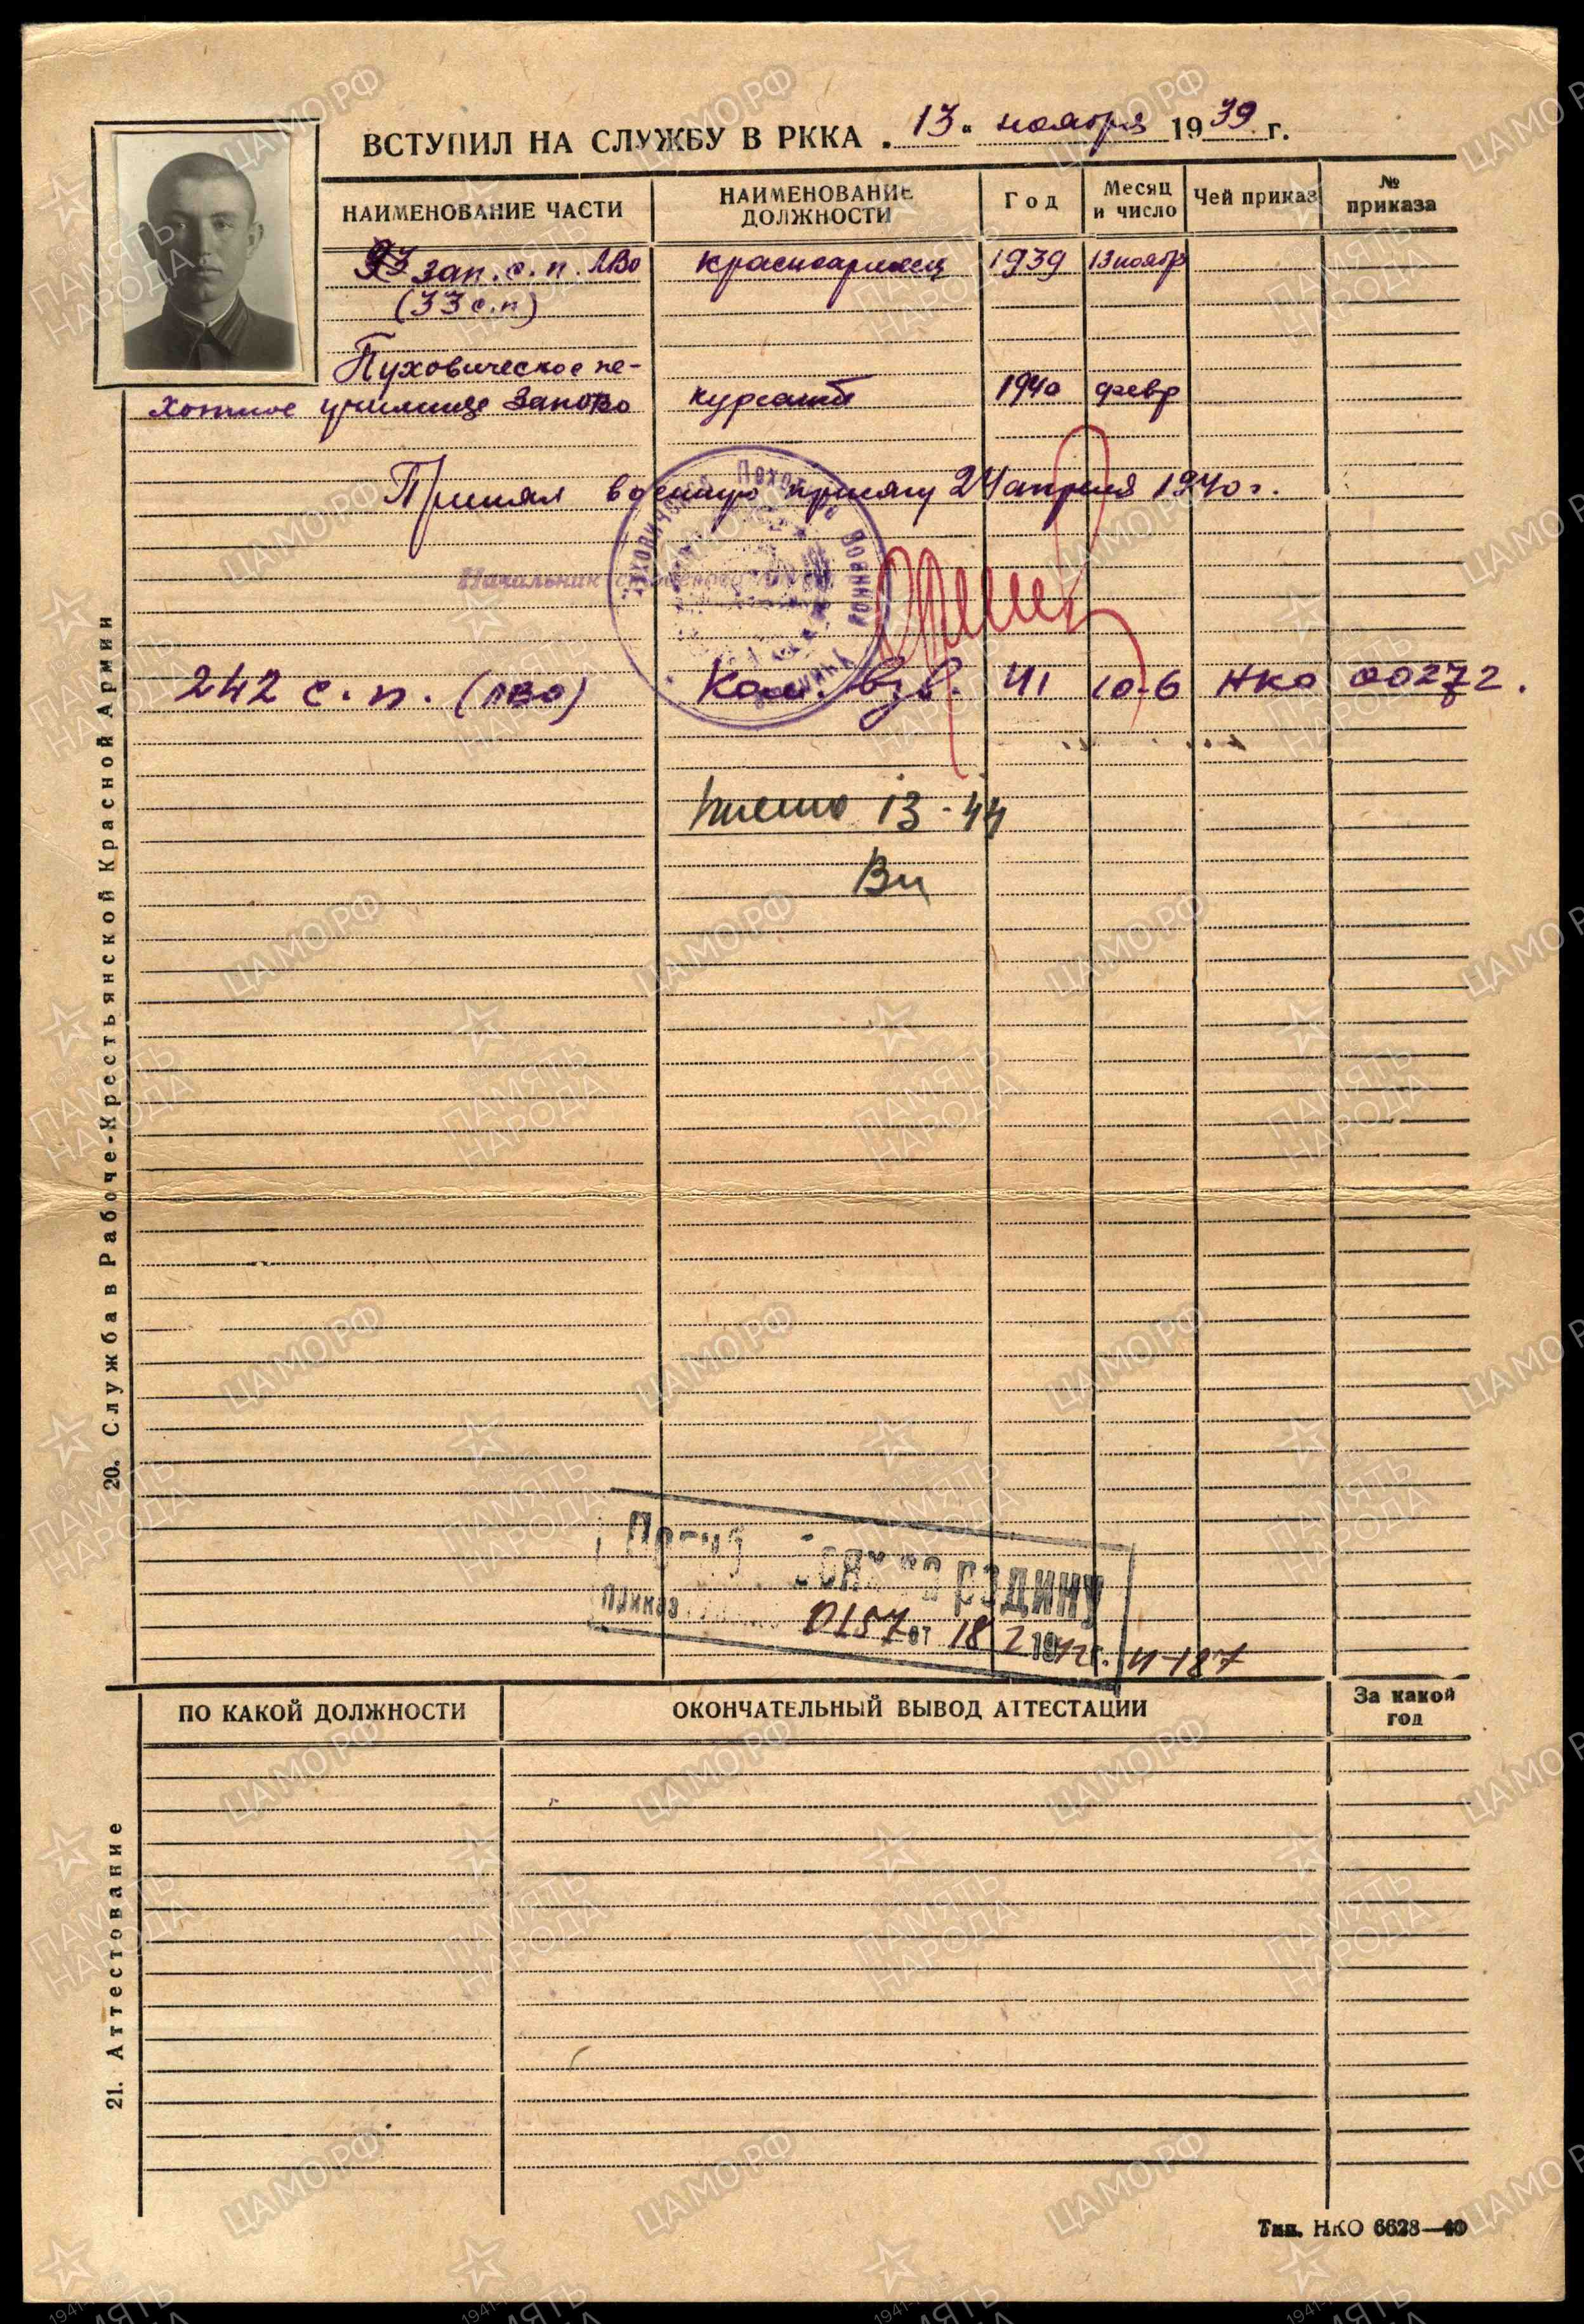 ВСТУПИЛ НА СЛУЖБУ В РККА „13“ ноября 1939 г.
НАИМЕНОВАНИЕ ЧАСТИ
НАИМЕНОВАНИЕ ДОЛЖНОСТИ
Год
Месяц и число
Чей приказ
№ приказа
зап. с. п. ЛВО красноармеец 1939 13 ноябр
(33 с.п)
Пуховическое пе-
хотное училище ЗапОВО курсант 1940 февр
Принял военную присягу 24 апреля 1940 г.
Начальник
242 с. п. (ПВО) Ком. взв. 41 10-6 НКО 00272.
13-44
20. Служба в Рабоче-Крестьянской Красной Армии
Родину
Приказ 0157 от 18 2 1942г. и-187
ПО КАКОЙ ДОЛЖНОСТИ
ОКОНЧАТЕЛЬНЫЙ ВЫВОД АТТЕСТАЦИИ
За какой год
21. Аттестование
Тип. НКО 6628—40
ЦАМО.РФ
ПАМЯТЬ НАРОДА
1941-1945